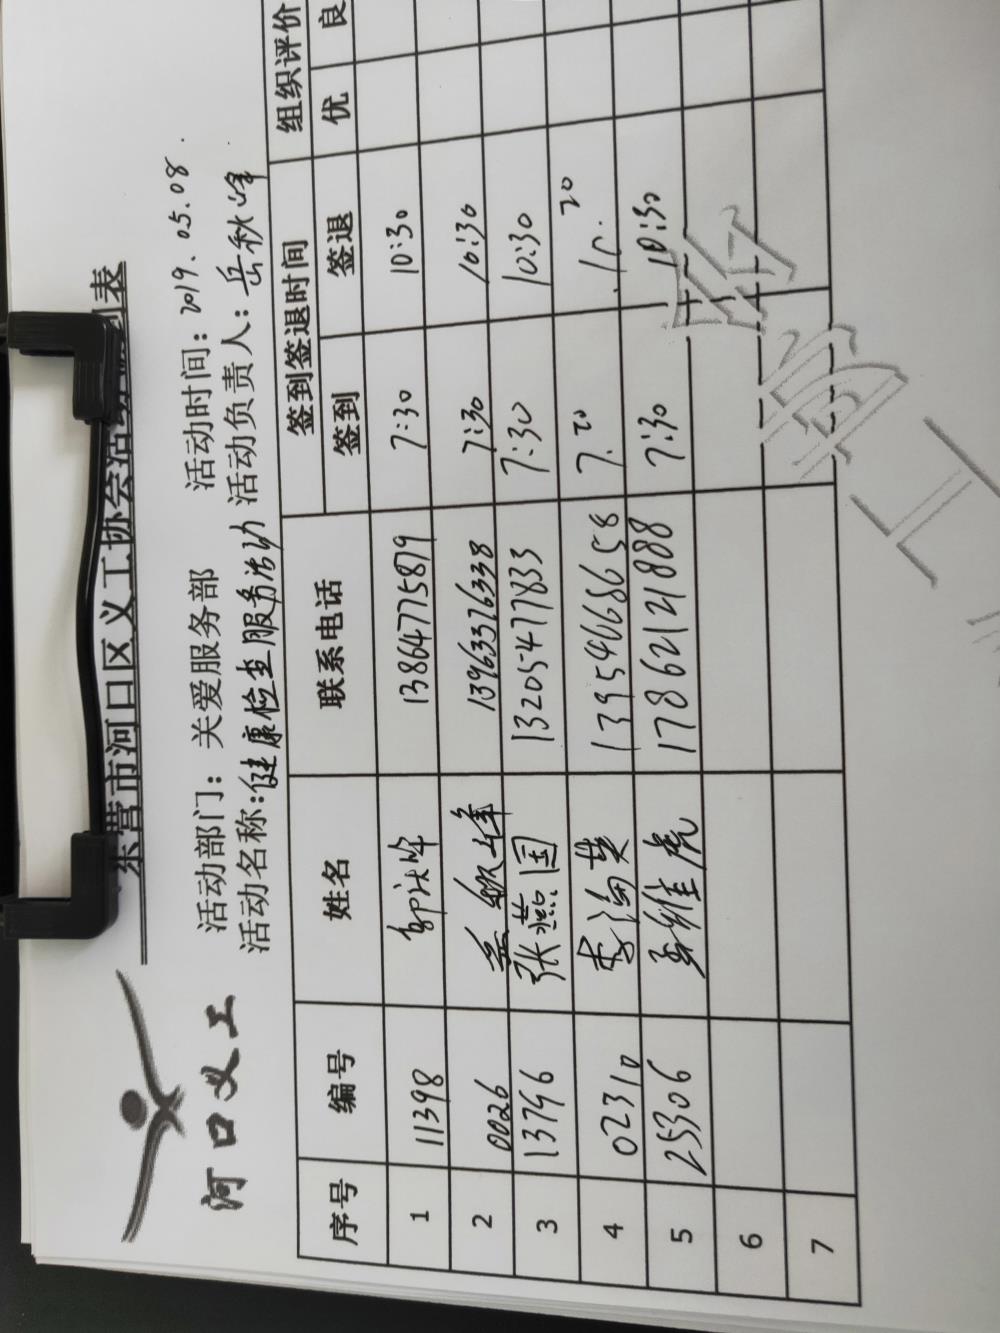 河口义工
东营市河口区义工协会活动签到表
活动部门：关爱服务部 活动时间：2019.05.08.
活动名称：健康检查服务活动 活动负责人：岳秋峰
序号 编号 姓名 联系电话 签到签退时间 组织评价
签到 签退 优 良
1 11398 13864775879 7:30 10:30
2 0026 13963376338 7:30 10:30
3 13796 张燕国 13205477833 7:30 10:30
4 02310 李海英 13954068658 7.20
5 25306 17862121888 7:30 10:30
6
7